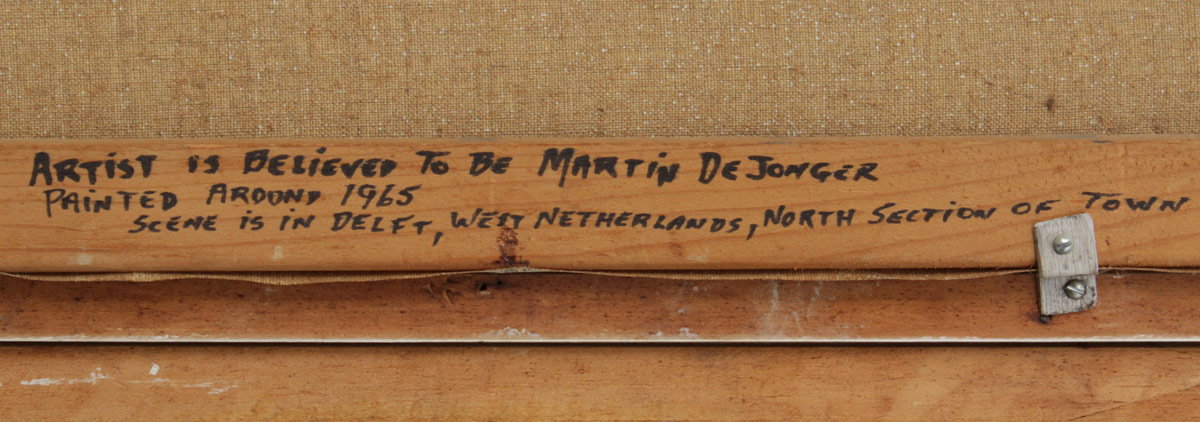 ARTIST IS BELIEVED TO BE MARTIN DEJONGER
PAINTED AROUND 1965
SCENE IS IN DELFT, WEST NETHERLANDS, NORTH SECTION OF TOWN